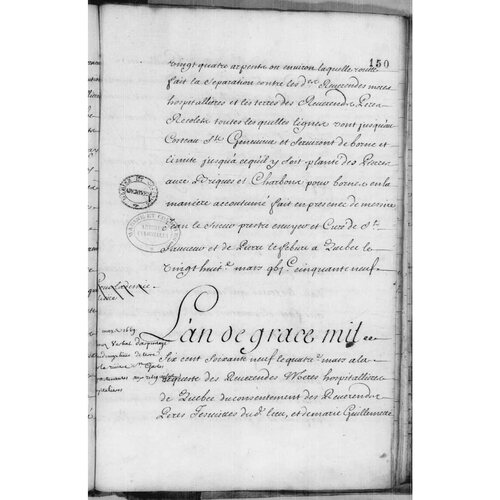 150
vingt quatre arpents ou environ laquelle route
fait la separation entre les dtes Reverendes meres
hospitallieres et les terres des Reverends Peres
Recolets toutes lesquelles lignes vont jusqu'au
Costeau Ste Genevieve et serviront de borne et
limite jusqu'a ce qu'il y soit planté des Pierres
avec Briques et Charbons pour bornes en la
maniere accoutumé fait en presence de messire
Jean le Sueur prestre escuyer et Curé de St
Sauveur et de Pierre lefebvre a Quebec le
Vingt huit e mars 96 cinquante neuf
L'an de grace mil
Six cent soixante neuf le quatre e mars a la
requeste des Reverendes Meres hospitallieres
de Quebec du consentement des Reverends
Peres Jesuistes du d. lieu, et de marie Guillemette
mars 1669
Verbal d'arpentage
de terre
la riviere St Charles
aux religieuses
hospitalieres